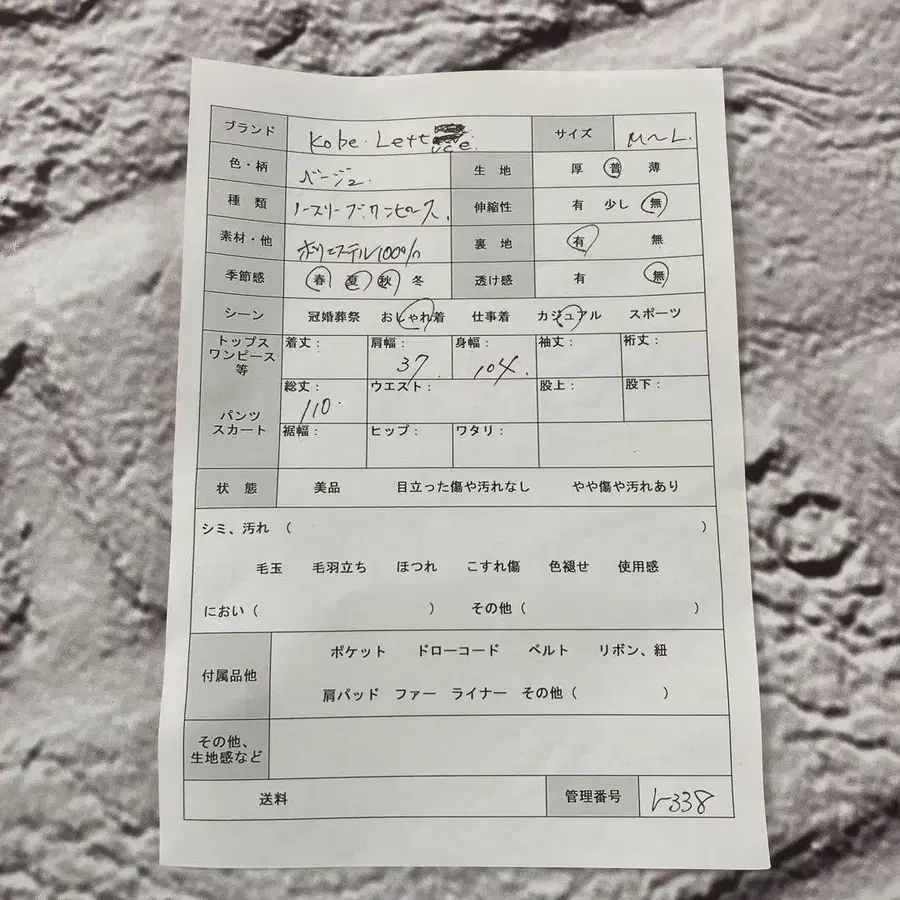 ブランド Kobe Lettuce. サイズ M〜L.
色・柄 ベージュ. 生地 厚 普 薄
種類 ノースリーブワンピース. 伸縮性 有 少し 無
素材・他 ポリエステル100% 裏地 有 無
季節感 春 夏 秋 冬 透け感 有 無
シーン 冠婚葬祭 おしゃれ着 仕事着 カジュアル スポーツ
トップス
ワンピース
等
着丈： 肩幅： 37. 身幅： 104. 袖丈： 裄丈：
パンツ
スカート
総丈： 110. ウエスト： 股上： 股下：
裾幅： ヒップ： ワタリ：
状態 美品 目立った傷や汚れなし やや傷や汚れあり
シミ、汚れ（ ）
毛玉 毛羽立ち ほつれ こすれ傷 色褪せ 使用感
におい（ ） その他（ ）
付属品他 ポケット ドローコード ベルト リボン、紐
肩パッド ファー ライナー その他（ ）
その他、
生地感など
送料 管理番号 レ338